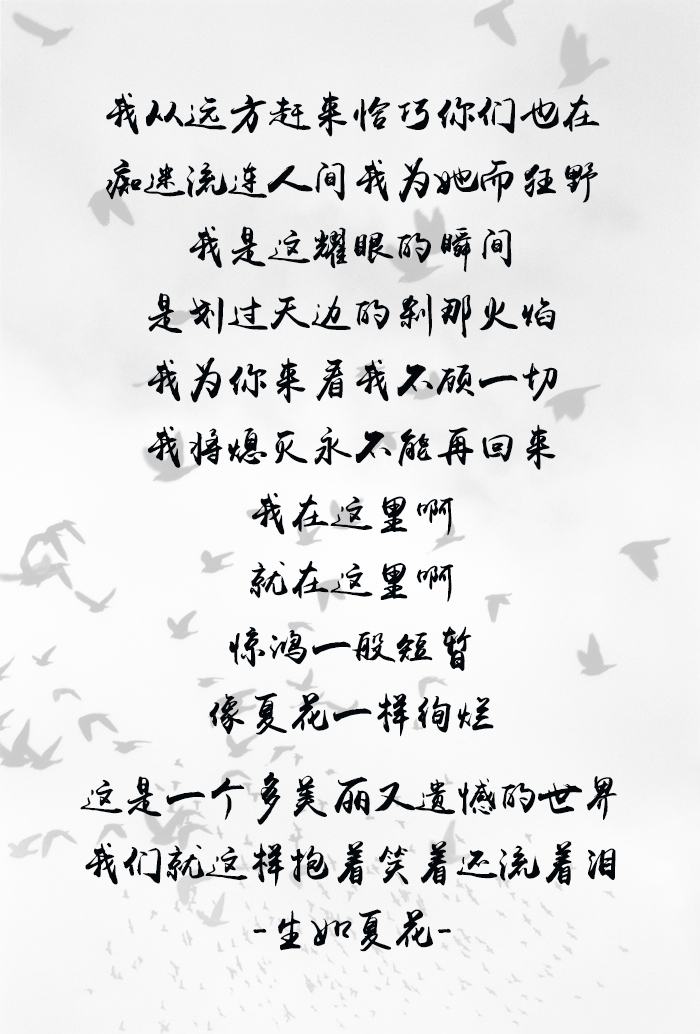 我从远方赶来恰巧你们也在
痴迷流连人间我为她而狂野
我是这耀眼的瞬间
是划过天边的刹那火焰
我为你来看我不顾一切
我将熄灭永不能再回来
我在这里啊
就在这里啊
惊鸿一般短暂
像夏花一样绚烂
这是一个多美丽又遗憾的世界
我们就这样抱着笑着还流着泪
-生如夏花-